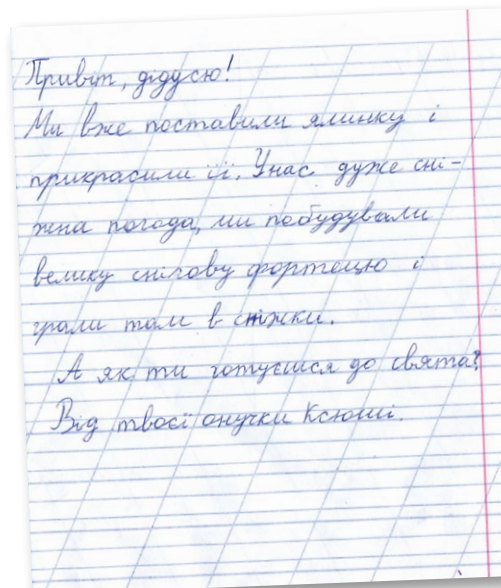 Привіт, дідусю!
Ми вже поставили ялинку і
прикрасили її. Унас дуже сні-
жна погода, ми побудували
велику снігову фортецю і
грали там в сніжки.
А як ти готуєшся до свята?
Від твоєї онучки Ксюші.